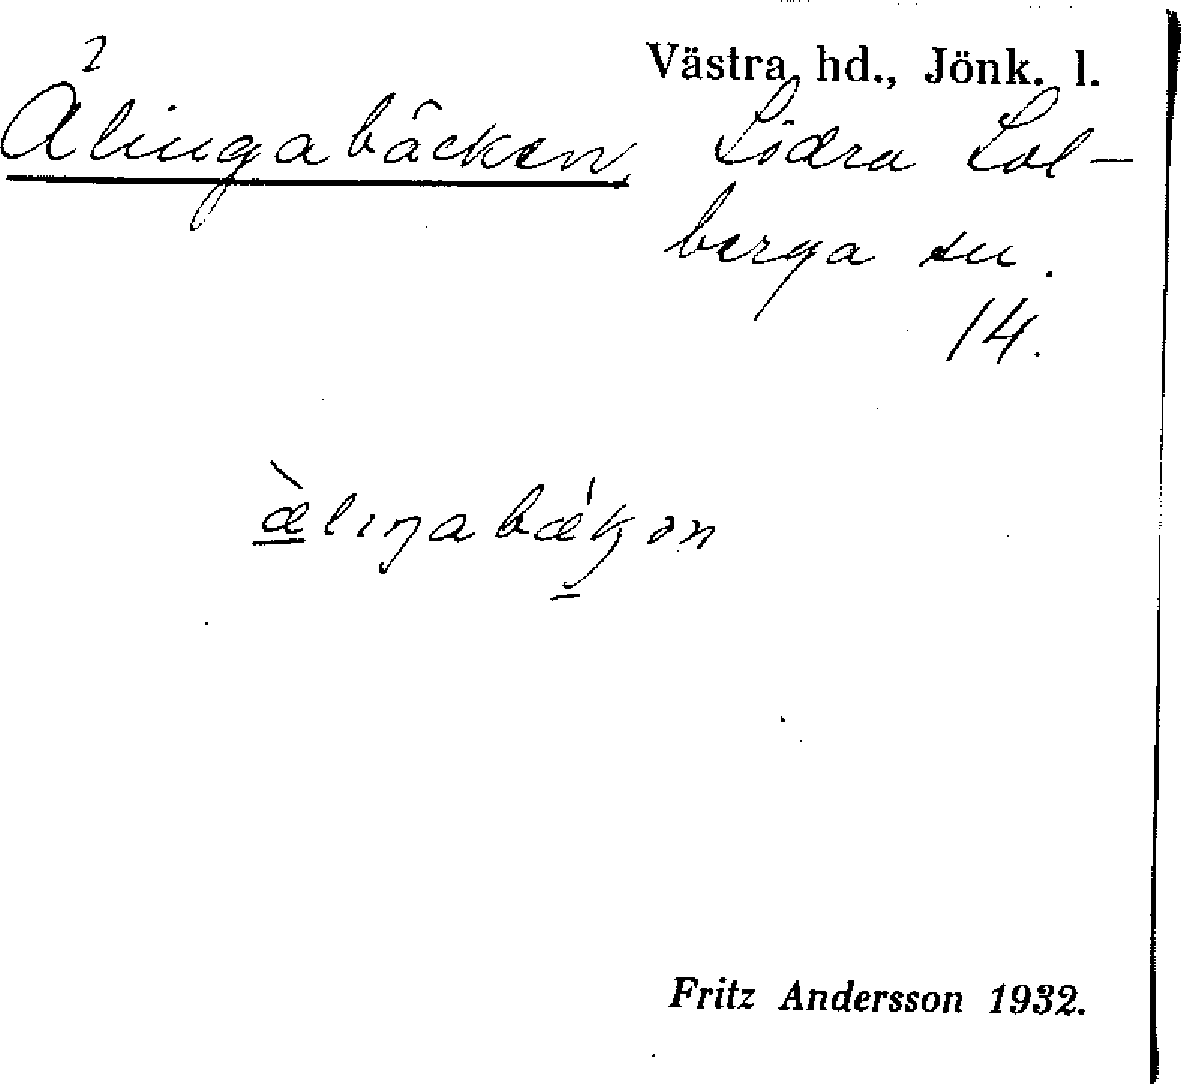 Västra hd., Jönk. l.
Älingabäcken Södra Sol-
berga sn.
14.
æ̲̀lıŋabǽk̡̲ən
Fritz Andersson 1932.